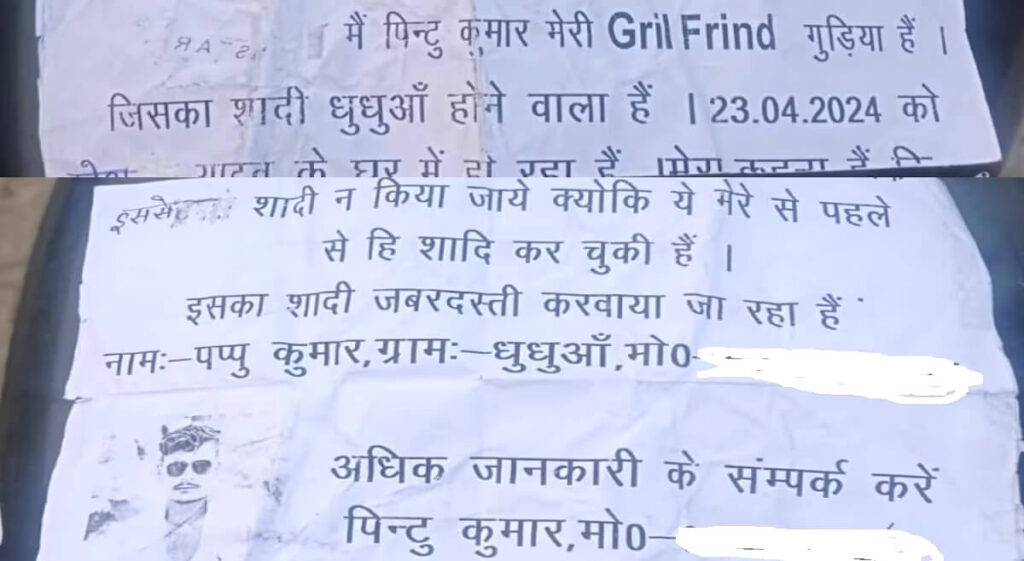 मैं पिन्टु कुमार मेरी Gril Frind गुड़िया हैं ।
जिसका शादी धुधुआँ होने वाला हैं । 23.04.2024 को
के घर में हो रहा हैं ।मेरा कहना हैं कि
इससे शादी न किया जाये क्योकि ये मेरे से पहले
से हि शादि कर चुकी हैं ।
इसका शादी जबरदस्ती करवाया जा रहा हैं
नामः–पप्पु कुमार,ग्रामः–धुधुआँ,मो0-
अधिक जानकारी के संम्पर्क करें
पिन्टु कुमार,मो0–